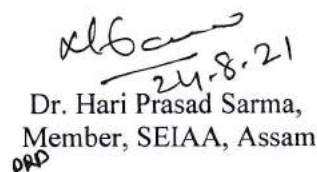 24-8-21
Dr. Hari Prasad Sarma,
Member, SEIAA, Assam
DRD